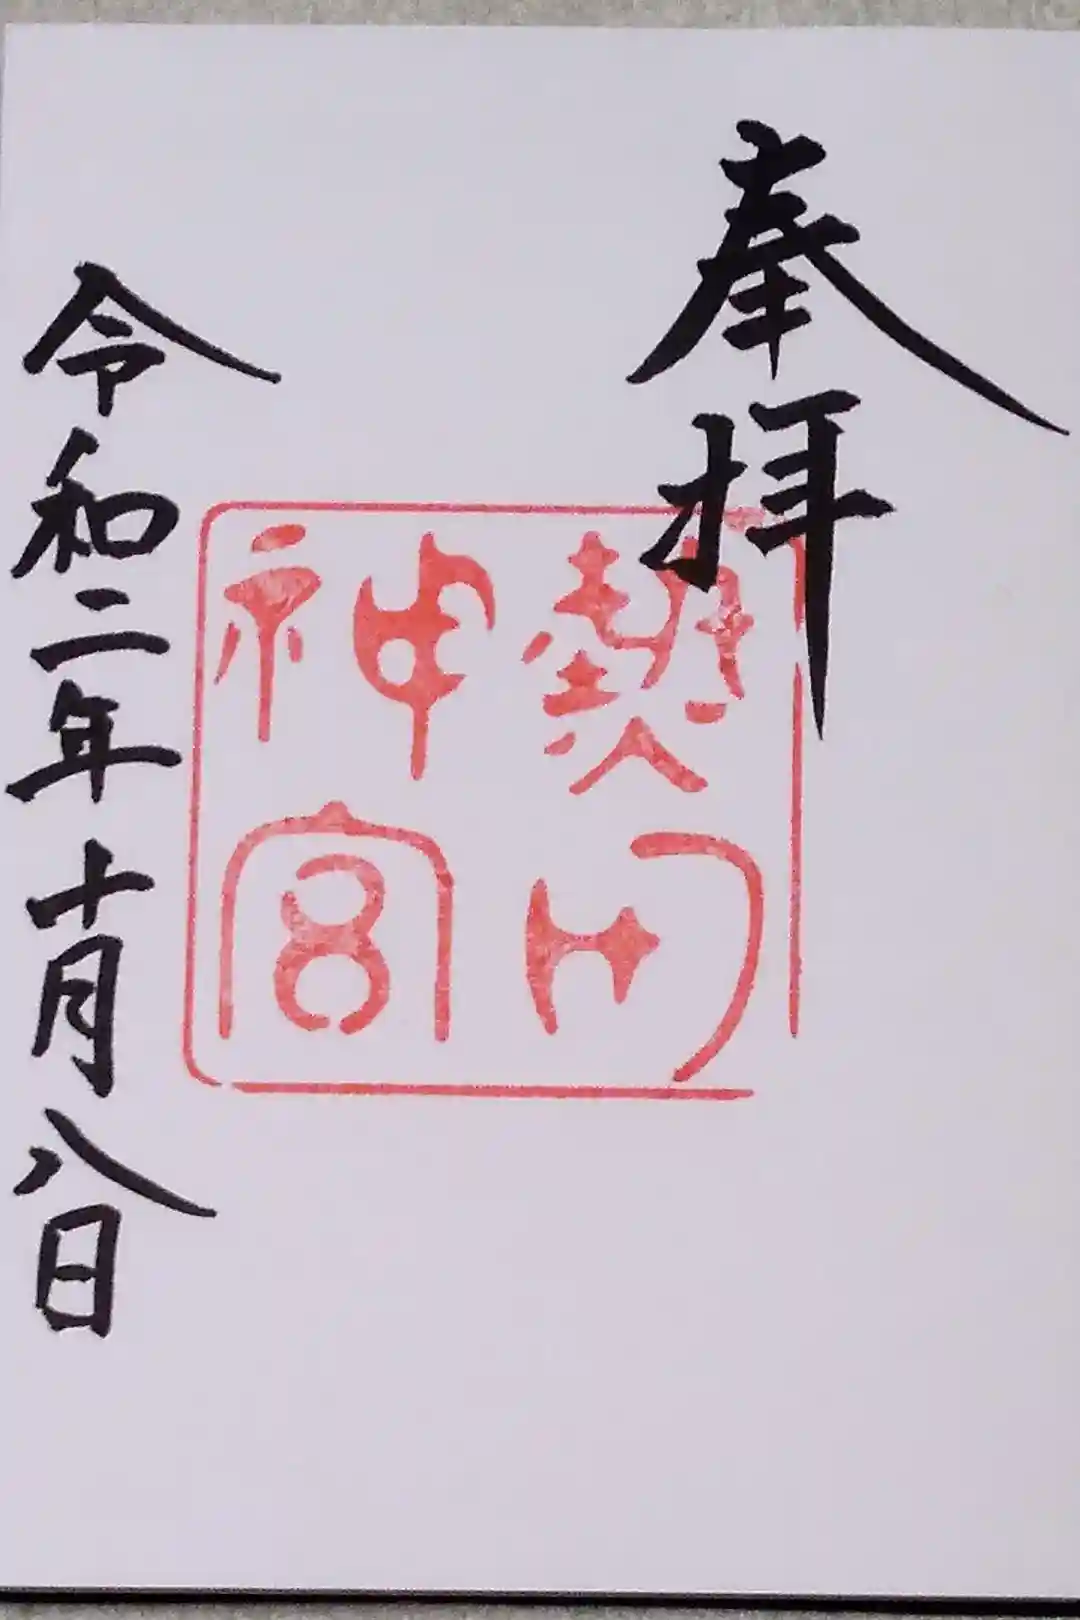 奉拝
熱田
神宮
令和二年十月八日